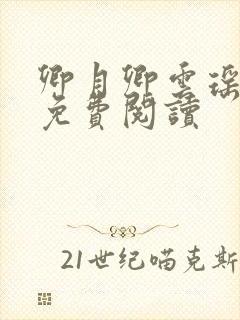 卿月卿雲瑶
免費閱讀
21世纪喵克斯